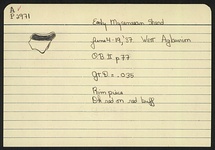 A
P 2971
Early Mycenaean Sherd
June 4-19, '37 West
O.B. II p 77
Gr. D = .035
Rim piece
Dk red on red buff